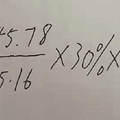 45.78
5.16
×30%×